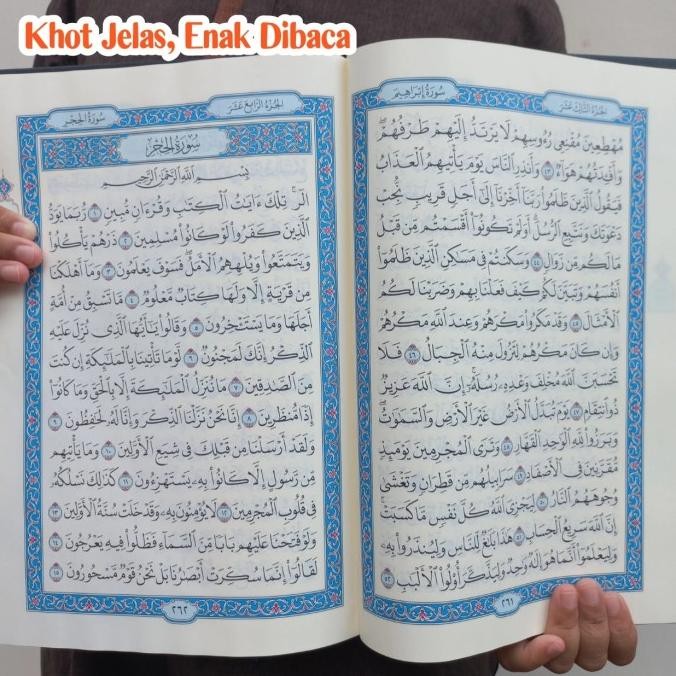 Khot Jelas, Enak Dibaca
الجُزْءُ الثَّالِثَ عَشَرَ سُورَةُ إِبْرَاهِيمَ
مُهْطِعِينَ مُقْنِعِى رُءُوسِهِمْ لَا يَرْتَدُّ إِلَيْهِمْ طَرْفُهُمْۖ
وَأَفْـِٔدَتُهُمْ هَوَآءٌ ٤٣ وَأَنذِرِ ٱلنَّاسَ يَوْمَ يَأْتِيهِمُ ٱلْعَذَابُ
فَيَقُولُ ٱلَّذِينَ ظَلَمُوا۟ رَبَّنَآ أَخِّرْنَآ إِلَىٰٓ أَجَلٍ قَرِيبٍ نُّجِبْ
دَعْوَتَكَ وَنَتَّبِعِ ٱلرُّسُلَۗ أَوَلَمْ تَكُونُوٓا۟ أَقْسَمْتُم مِّن قَبْلُ
مَا لَكُم مِّن زَوَالٍ ٤٤ وَسَكَنتُمْ فِى مَسَٰكِنِ ٱلَّذِينَ ظَلَمُوٓا۟
أَنفُسَهُمْ وَتَبَيَّنَ لَكُمْ كَيْفَ فَعَلْنَا بِهِمْ وَضَرَبْنَا لَكُمُ
ٱلْأَمْثَالَ ٤٥ وَقَدْ مَكَرُوا۟ مَكْرَهُمْ وَعِندَ ٱللَّهِ مَكْرُهُمْ
وَإِن كَانَ مَكْرُهُمْ لِتَزُولَ مِنْهُ ٱلْجِبَالُ ٤٦ فَلَا
تَحْسَبَنَّ ٱللَّهَ مُخْلِفَ وَعْدِهِۦ رُسُلَهُۥٓۗ إِنَّ ٱللَّهَ عَزِيزٌ
ذُو ٱنتِقَامٍ ٤٧ يَوْمَ تُبَدَّلُ ٱلْأَرْضُ غَيْرَ ٱلْأَرْضِ وَٱلسَّمَٰوَٰتُۖ
وَبَرَزُوا۟ لِلَّهِ ٱلْوَٰحِدِ ٱلْقَهَّارِ ٤٨ وَتَرَى ٱلْمُجْرِمِينَ يَوْمَئِذٍ
مُّقَرَّنِينَ فِى ٱلْأَصْفَادِ ٤٩ سَرَابِيلُهُم مِّن قَطِرَانٍ وَتَغْشَىٰ
وُجُوهَهُمُ ٱلنَّارُ ٥٠ لِيَجْزِىَ ٱللَّهُ كُلَّ نَفْسٍ مَّا كَسَبَتْۚ
إِنَّ ٱللَّهَ سَرِيعُ ٱلْحِسَابِ ٥١ هَٰذَا بَلَٰغٌ لِّلنَّاسِ وَلِيُنذَرُوا۟ بِهِۦ
وَلِيَعْلَمُوٓا۟ أَنَّمَا هُوَ إِلَٰهٌ وَٰحِدٌ وَلِيَذَّكَّرَ أُو۟لُوا۟ ٱلْأَلْبَٰبِ ٥٢
٢٦١
الجُزْءُ الرَّابِعَ عَشَرَ سُورَةُ الحِجْرِ
سُورَةُ الحِجْرِ
بِسْمِ ٱللَّهِ ٱلرَّحْمَٰنِ ٱلرَّحِيمِ
الٓرۚ تِلْكَ ءَايَٰتُ ٱلْكِتَٰبِ وَقُرْءَانٍ مُّبِينٍ ١ رُّبَمَا يَوَدُّ
ٱلَّذِينَ كَفَرُوا۟ لَوْ كَانُوا۟ مُسْلِمِينَ ٢ ذَرْهُمْ يَأْكُلُوا۟
وَيَتَمَتَّعُوا۟ وَيُلْهِهِمُ ٱلْأَمَلُۖ فَسَوْفَ يَعْلَمُونَ ٣ وَمَآ أَهْلَكْنَا
مِن قَرْيَةٍ إِلَّا وَلَهَا كِتَابٌ مَّعْلُومٌ ٤ مَّا تَسْبِقُ مِنْ أُمَّةٍ
أَجَلَهَا وَمَا يَسْتَـْٔخِرُونَ ٥ وَقَالُوا۟ يَٰٓأَيُّهَا ٱلَّذِى نُزِّلَ عَلَيْهِ
ٱلذِّكْرُ إِنَّكَ لَمَجْنُونٌ ٦ لَّوْ مَا تَأْتِينَا بِٱلْمَلَٰٓئِكَةِ إِن كُنتَ
مِنَ ٱلصَّٰدِقِينَ ٧ مَا نُنَزِّلُ ٱلْمَلَٰٓئِكَةَ إِلَّا بِٱلْحَقِّ وَمَا كَانُوٓا۟
إِذًا مُّنظَرِينَ ٨ إِنَّا نَحْنُ نَزَّلْنَا ٱلذِّكْرَ وَإِنَّا لَهُۥ لَحَٰفِظُونَ ٩
وَلَقَدْ أَرْسَلْنَا مِن قَبْلِكَ فِى شِيَعِ ٱلْأَوَّلِينَ ١٠ وَمَا يَأْتِيهِم
مِّن رَّسُولٍ إِلَّا كَانُوا۟ بِهِۦ يَسْتَهْزِءُونَ ١١ كَذَٰلِكَ نَسْلُكُهُۥ
فِى قُلُوبِ ٱلْمُجْرِمِينَ ١٢ لَا يُؤْمِنُونَ بِهِۦۖ وَقَدْ خَلَتْ سُنَّةُ ٱلْأَوَّلِينَ ١٣
وَلَوْ فَتَحْنَا عَلَيْهِم بَابًا مِّنَ ٱلسَّمَآءِ فَظَلُّوا۟ فِيهِ يَعْرُجُونَ ١٤
لَقَالُوٓا۟ إِنَّمَا سُكِّرَتْ أَبْصَٰرُنَا بَلْ نَحْنُ قَوْمٌ مَّسْحُورُونَ ١٥
٢٦٢